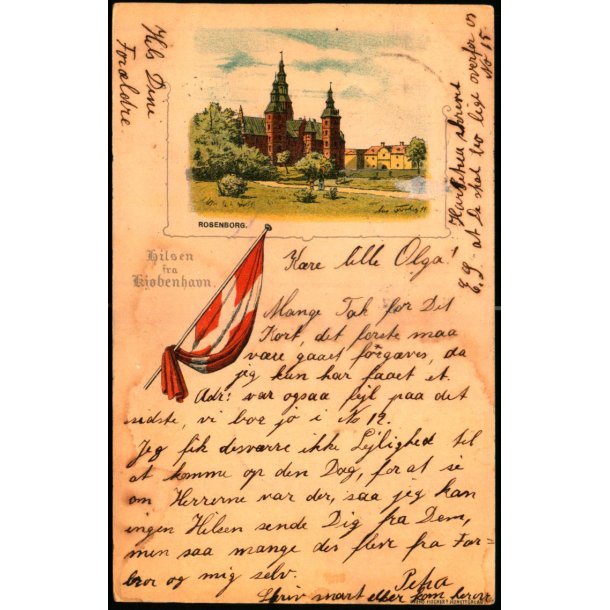 Hils Dine
Forældre.
ROSENBORG.
Hilsen
fra
Kjøbenhavn.
Kære lille Olga!
Mange Tak for Dit
Kort, det første maa
være gaaet forgæves, da
jeg kun har faaet et.
Adr: var ogsaa fejl paa det
sidste, vi bor jo i No 12.
Jeg fik desværre ikke Lejlighed til
at komme op den Dag, for at se
om Herrerne var der, saa jeg kan
ingen Hilsen sende Dig fra Dem,
men saa mange des flere fra Far-
bror og mig selv.
Petra
Skriv snart eller kom
E.S. at de skal bo lige overfor os
No 15.